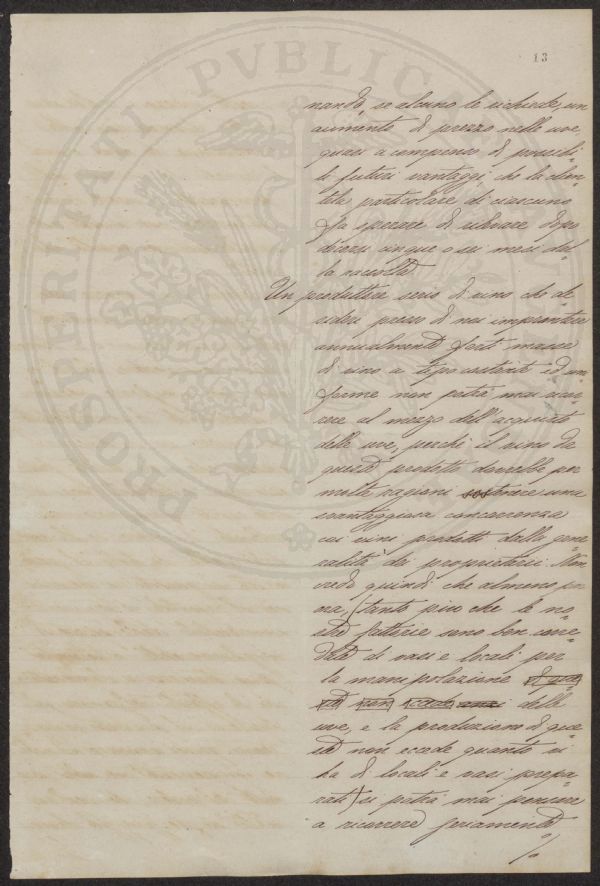 PROSPERITATI PVBLICAE
13
nando, se alcuno le richiede, un
aumento di prezzo nelle uve,
quasi a compenso di possibi-
li futuri vantaggi che la clien-
tela particolare di ciascuno
fa sperare di ritrarre dopo
decorsi cinque o sei mesi dal-
la raccolta.
Un produttore serio di vino che de-
sideri presso di noi impiantare
annualmente forti masse
di vino a tipo costante ed uni-
forme non potrà mai ricor-
rere al mezzo dell'acquisto
delle uve, perchè il vino da
questi prodotto dovrebbe per
molte ragioni sostenere una
svantaggiosa concorrenza
coi vini prodotti dalla gene-
ralità dei proprietari. Non
credo quindi che almeno per
ora, (tanto più che le no-
stre fattorie sono ben corre-
date di vasi e locali per
la manipolazione
delle
uve, e la produzione di que-
ste non eccede quanto vi
ha di locali e vasi prepa-
rati) si potrà mai pensare
a ricorrere seriamente
./.